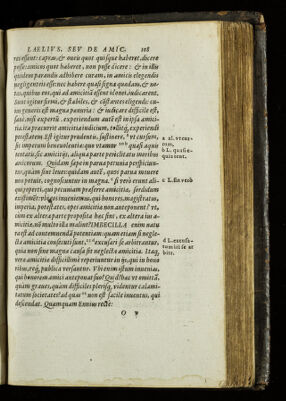 LAELIVS, SEV DE AMIC. 108
res essent: capras & oues quot quisque haberet, dicere
posse: amicos quot haberet, non posse dicere: & in illis
quidem parandis adhibere curam, in amicis eligendis
negligentes esse: nec habere quasi signa quædam, & no-
tas, quibus eos, qui ad amicitiã essent idonei, iudicarent.
Sunt igitur firmi, & stabiles, & cõstantes eligendi: cu-
ius generis est magna penuria: & iudicare difficile est,
sanè, nisi expertũ. experiendum autẽ est in ipsa amici-
tia. ita præcurrit amicitia iudicium, tollitq; experiendi
potestatem. Est igitur prudentis, sustinere, ut cursum,
sic impetum beneuolentiæ: quo vtamur quasi equis
tentatis, sic amicitijs, aliqua parte periclitatis moribus
amicorum. Quidam sæpe in parua pecunia perspiciun-
tur, quàm sint leues: quidam autẽ, quos parua mouere
non potuit, cognoscuntur in magna. si verò erunt ali-
qui reperti, qui pecuniam præferre amicitiæ, sordidum
existiment: vbi eos inueniemus, qui honores, magistratus,
imperia, potestates, opes, amicitiæ non anteponant? vt,
cum ex altera parte proposita hæc sint, ex altera ius a-
micitiæ, nõ multo illa malint? IMBECILLA enim natu
ra est ad contemnendã potentiam: quam etiam si negle-
cta amicitia consecuti sunt, excusari se arbitrantur,
quia non sine magna causa sit neglecta amicitia. Itaq;
veræ amicitiæ difficillimè reperiuntur in ijs, qui in hono
ribus, req; publica versantur. Vbi enim istum inuenias,
qui honorem amici anteponat suo? Quid hæc vt omittã,
quàm graues, quàm difficiles plerisq; videntur calami-
tatum societates? ad quas non est facile inuentu, qui
descendat. Quamquam Ennius rectè:
O 
c L. sin verò